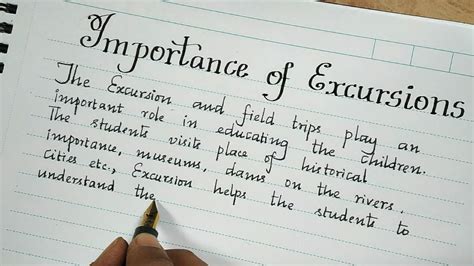 Importance of Excursions
The Excursion and field trips play an
important role in educating the children.
The students visite place of historical
importance, museums, dams on the rivers,
cities etc., Excursion helps the students to
understand the